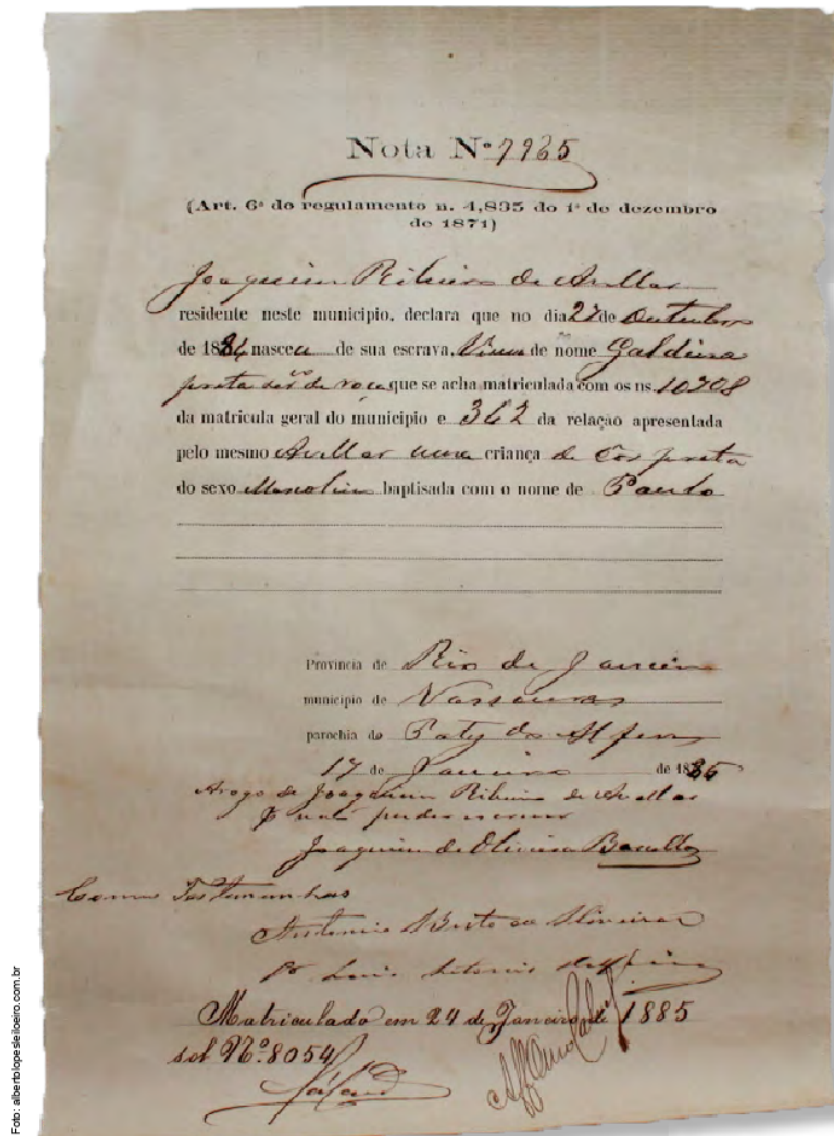 Nota Nº 7965
(Art. 6º do regulamento n. 4,835 do 1º de dezembro
de 1871)
Joaquim Ribeiro de Avellar
residente neste municipio, declara que no dia 27 de Outubro
de 1884 nasceu de sua escrava de nome Galdina
preta de roça que se acha matriculada com os ns. 10208
da matricula geral do municipio e 362 da relação apresentada
pelo mesmo Avellar uma criança de Côr preta
do sexo Masculino baptisada com o nome de Paulo
Provincia de Rio de Janeiro
municipio de Vassouras
parochia do Paty do Alferes
17 de Janeiro de 1885
Arogo de Joaquim Ribeiro de Avellar
Joaquim de Oliveira
Como Testemunhas
Antonio de Oliveira
Luis Antonio
Matriculado em 24 de Janeiro de 1885
sob Nº. 8054
Foto: albertolopesleiloeiro.com.br